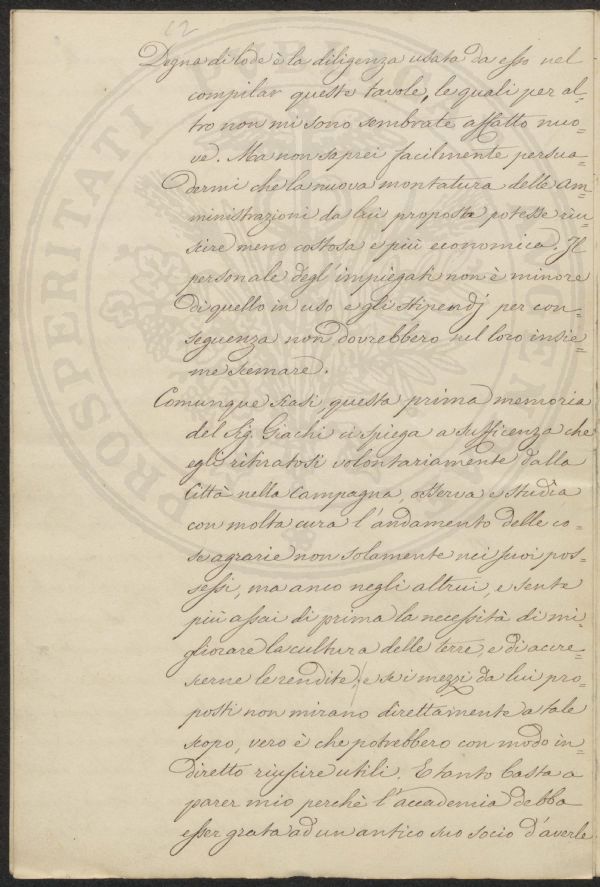 62
Degna di lode è la diligenza usata da esso nel
compilar queste tavole, le quali per al=
tro non mi sono sembrate affatto nuo=
ve. Ma non saprei facilmente persua=
dermi che la nuova montatura delle am=
ministrazioni da lui proposta potesse riu=
scire meno costosa e più economica. Il
personale degl'impiegati non è minore
di quello in uso e gli stipendj per con=
seguenza non dovrebbero nel loro insie=
me scemare.
Comunque siasi questa prima memoria
del Sig. Giachi ci spiega a sufficenza che
egli ritiratosi volontariamente dalla
Città nella Campagna, osserva e studia
con molta cura l'andamento delle co=
se agrarie non solamente nei suoi pos=
sessi, ma anco negli altrui, e sente
più assai di prima la necessità di mi=
gliorare la cultura delle terre, e di accre=
scerne le rendite; e se i mezzi da lui pro=
posti non mirano direttamente a tale
scopo, vero è che potrebbero con modo in=
diretto riuscire utili. E tanto basta a
parer mio perchè l'accademia debba
esser grata ad un antico suo socio d'averle
PROSPERITATI PUBLICAE